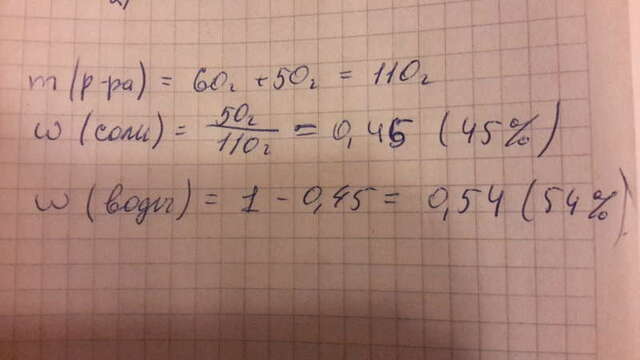 m (р-ра) = 60г + 50г = 110г
w (соли) = 50г/110г = 0,45 (45%)
w (воды) = 1 - 0,45 = 0,54 (54%)